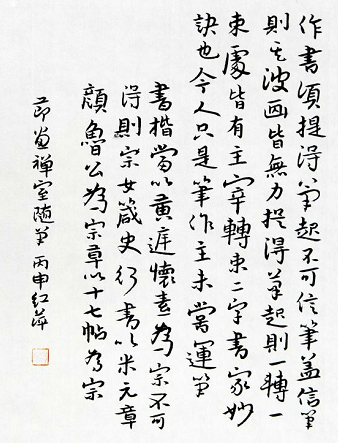 作書須提得筆起不可信筆蓋信筆
則其波画皆無力提得筆起則一轉一
束處皆有主宰轉束二字書家妙
訣也今人只是筆作主未嘗運筆
書楷當以黄庭懷素為宗不可
得則宗女箴史行書以米元章
顔魯公為宗草以十七帖為宗
節畫禪室隨筆丙申紅萍